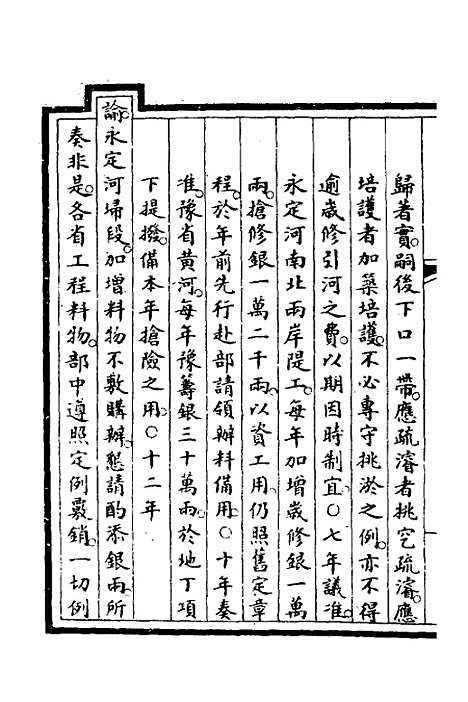 歸著實。嗣後下口一帶。應疏濬者挑空疏濬。應
培護者加築培護。不必專守挑淤之例。亦不得
逾歲修引河之費。以期因時制宜○七年議准。
永定河南北兩岸隄工。每年加增歲修銀一萬
兩。搶修銀一萬二千兩。以資工用。仍照舊定章
程。於年前先行赴部請領辦料備用。○十年奏
准。豫省黃河。每年豫籌銀三十萬兩。於地丁項
下提撥。備本年搶險之用。○十二年
諭。永定河埽段。加增料物不敷購辦。懇請酌添銀兩。所
奏非是。各省工程料物。部中遵照定例覈銷。一切例